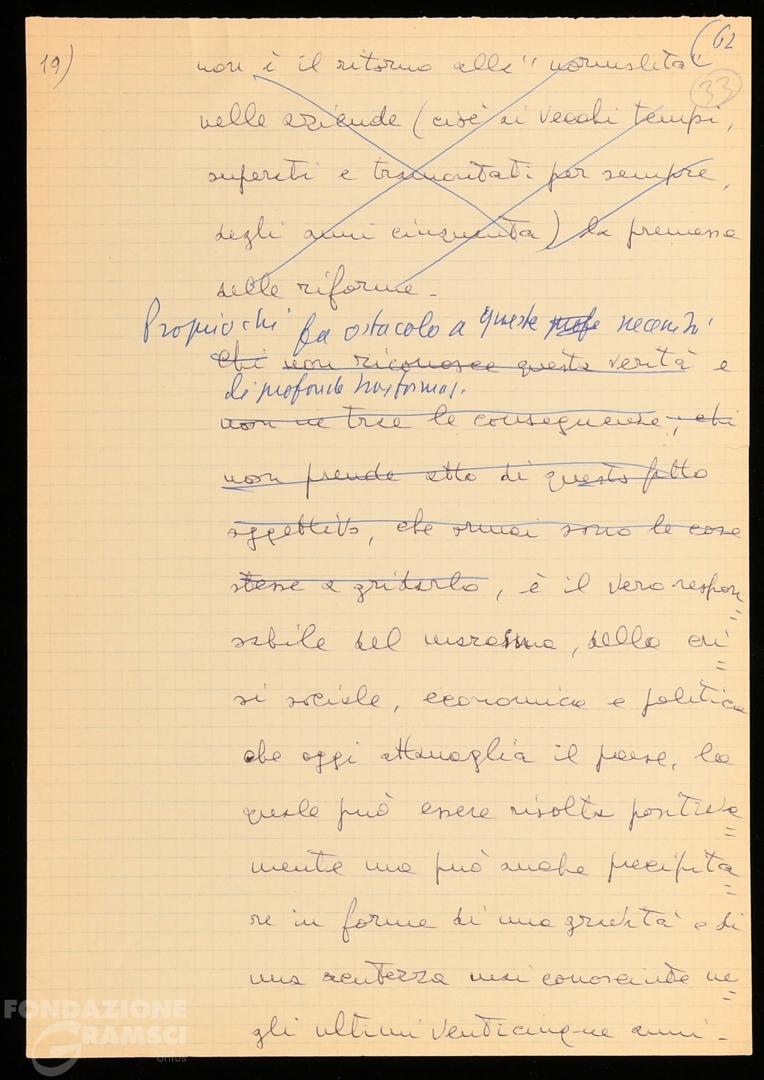 19)
62
33
non è il ritorno alla "normalità"
nelle aziende (cioè ai vecchi tempi,
superati e tramontati per sempre,
degli anni cinquanta) la premessa
delle riforme -
Proprio chi fa ostacolo a queste necessità
chi non riconosce questa verità e
di profonde trasformaz.
non ne trae le conseguenze, chi
non prende atto di questo fatto
oggettivo, che ormai sono le cose
stesse a gridarlo, è il vero respon=
sabile del marasma, della cri=
si sociale, economica e politica
che oggi attanaglia il paese, la
quale può essere risolta positiva=
mente ma può anche precipita=
re in forme di una gravità e di
una acutezza mai conosciute ne=
gli ultimi venticinque anni -
FONDAZIONE
GRAMSCI
onlus